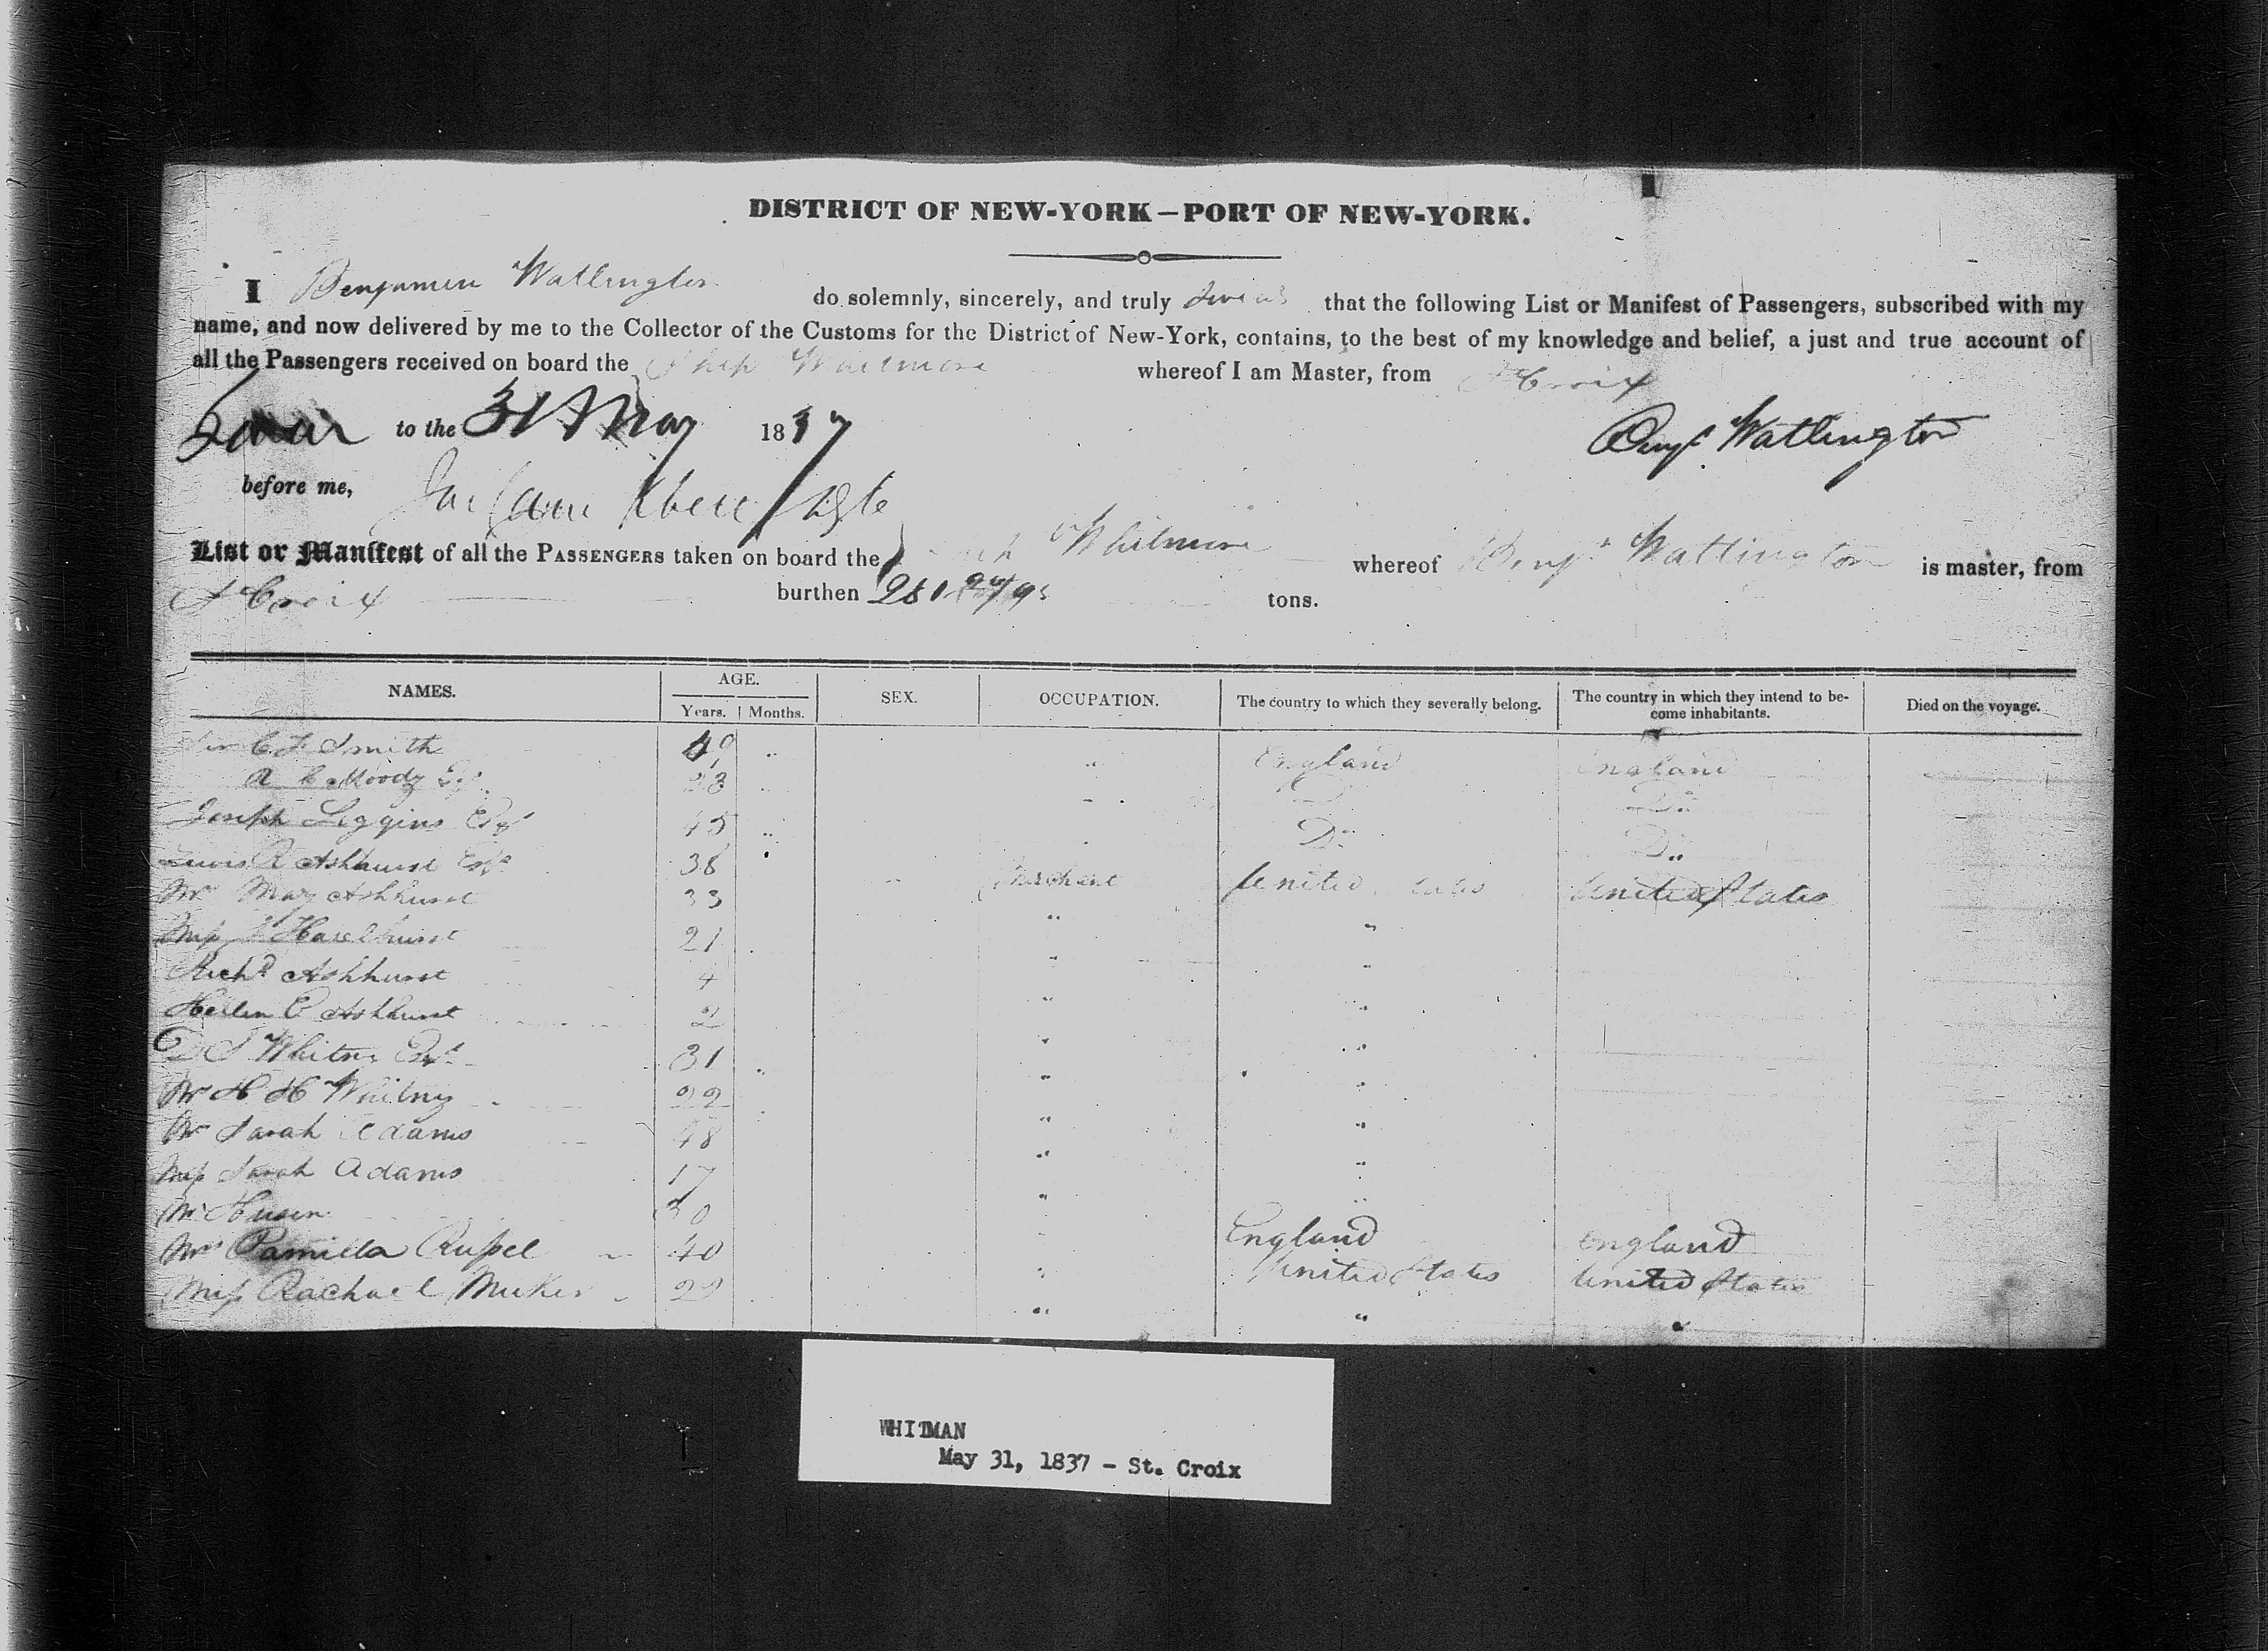 DISTRICT OF NEW-YORK—PORT OF NEW-YORK.
I Benjamin Watlington do solemnly, sincerely, and truly swear that the following List or Manifest of Passengers, subscribed with my
name, and now delivered by me to the Collector of the Customs for the District of New-York, contains, to the best of my knowledge and belief, a just and true account of
all the Passengers received on board the Ship Whitmore whereof I am Master, from St Croix
to the 31st May 1837 Benj. Watlington
before me,
List or Manifest of all the PASSENGERS taken on board the Ship Whitmore whereof Benj. Watlington is master, from
St Croix burthen 281 tons.
NAMES. AGE. SEX. OCCUPATION. The country to which they severally belong. The country in which they intend to be- Died on the voyage.
Years. Months. come inhabitants.
Sir C F Smith England England
A C Moody Esqr 28 Do
Joseph Liggins Esqr 45 Do Do
Lewis R Ashhurst Esqr 38 Merchant United States United States
Mrs Mary Ashhurst 33 "
Miss Hazelhurst 21 "
Richd Ashhurst 4 "
Hellen C Ashhurst 2 "
D S Whitny Esqr 31 "
Mrs H H Whitny 22 "
Mrs Sarah Adams 48 "
Miss Sarah Adams 17 "
Mr 30 England England
Mrs Pamilla Russel 40 United States United States
Miss Rachael Meeker 22 " "
WHITMAN
May 31, 1837 - St. Croix